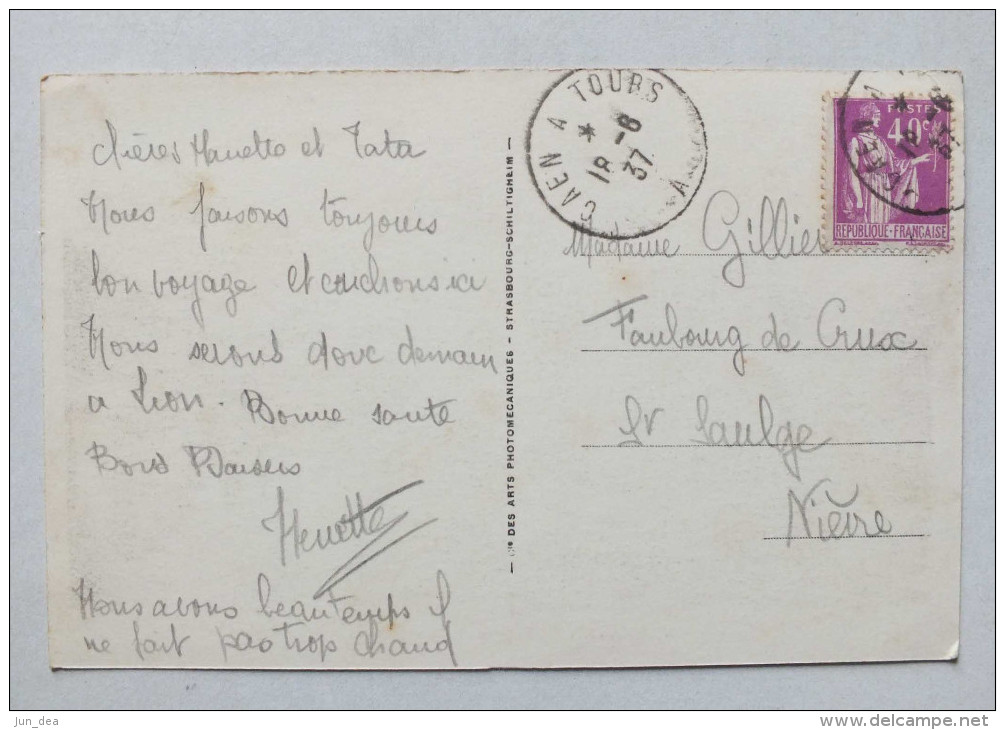 chères Manette et Tata
Nous faisons toujours
bon voyage et couchons ici
Nous serons donc demain
a Lion. Bonne santé
Bons Baisers
Henette
Nous avons beau temps il
ne fait pas trop chaud
— Cie DES ARTS PHOTOMECANIQUES - STRASBOURG-SCHILTIGHEIM —
CAEN A TOURS
* 18 -8
37
A
POSTES
40c
RÉPUBLIQUE-FRANÇAISE
Madame Gillie
Faubourg de Crux
St Saulge
Nièvre
jun_dea
www.delcampe.net